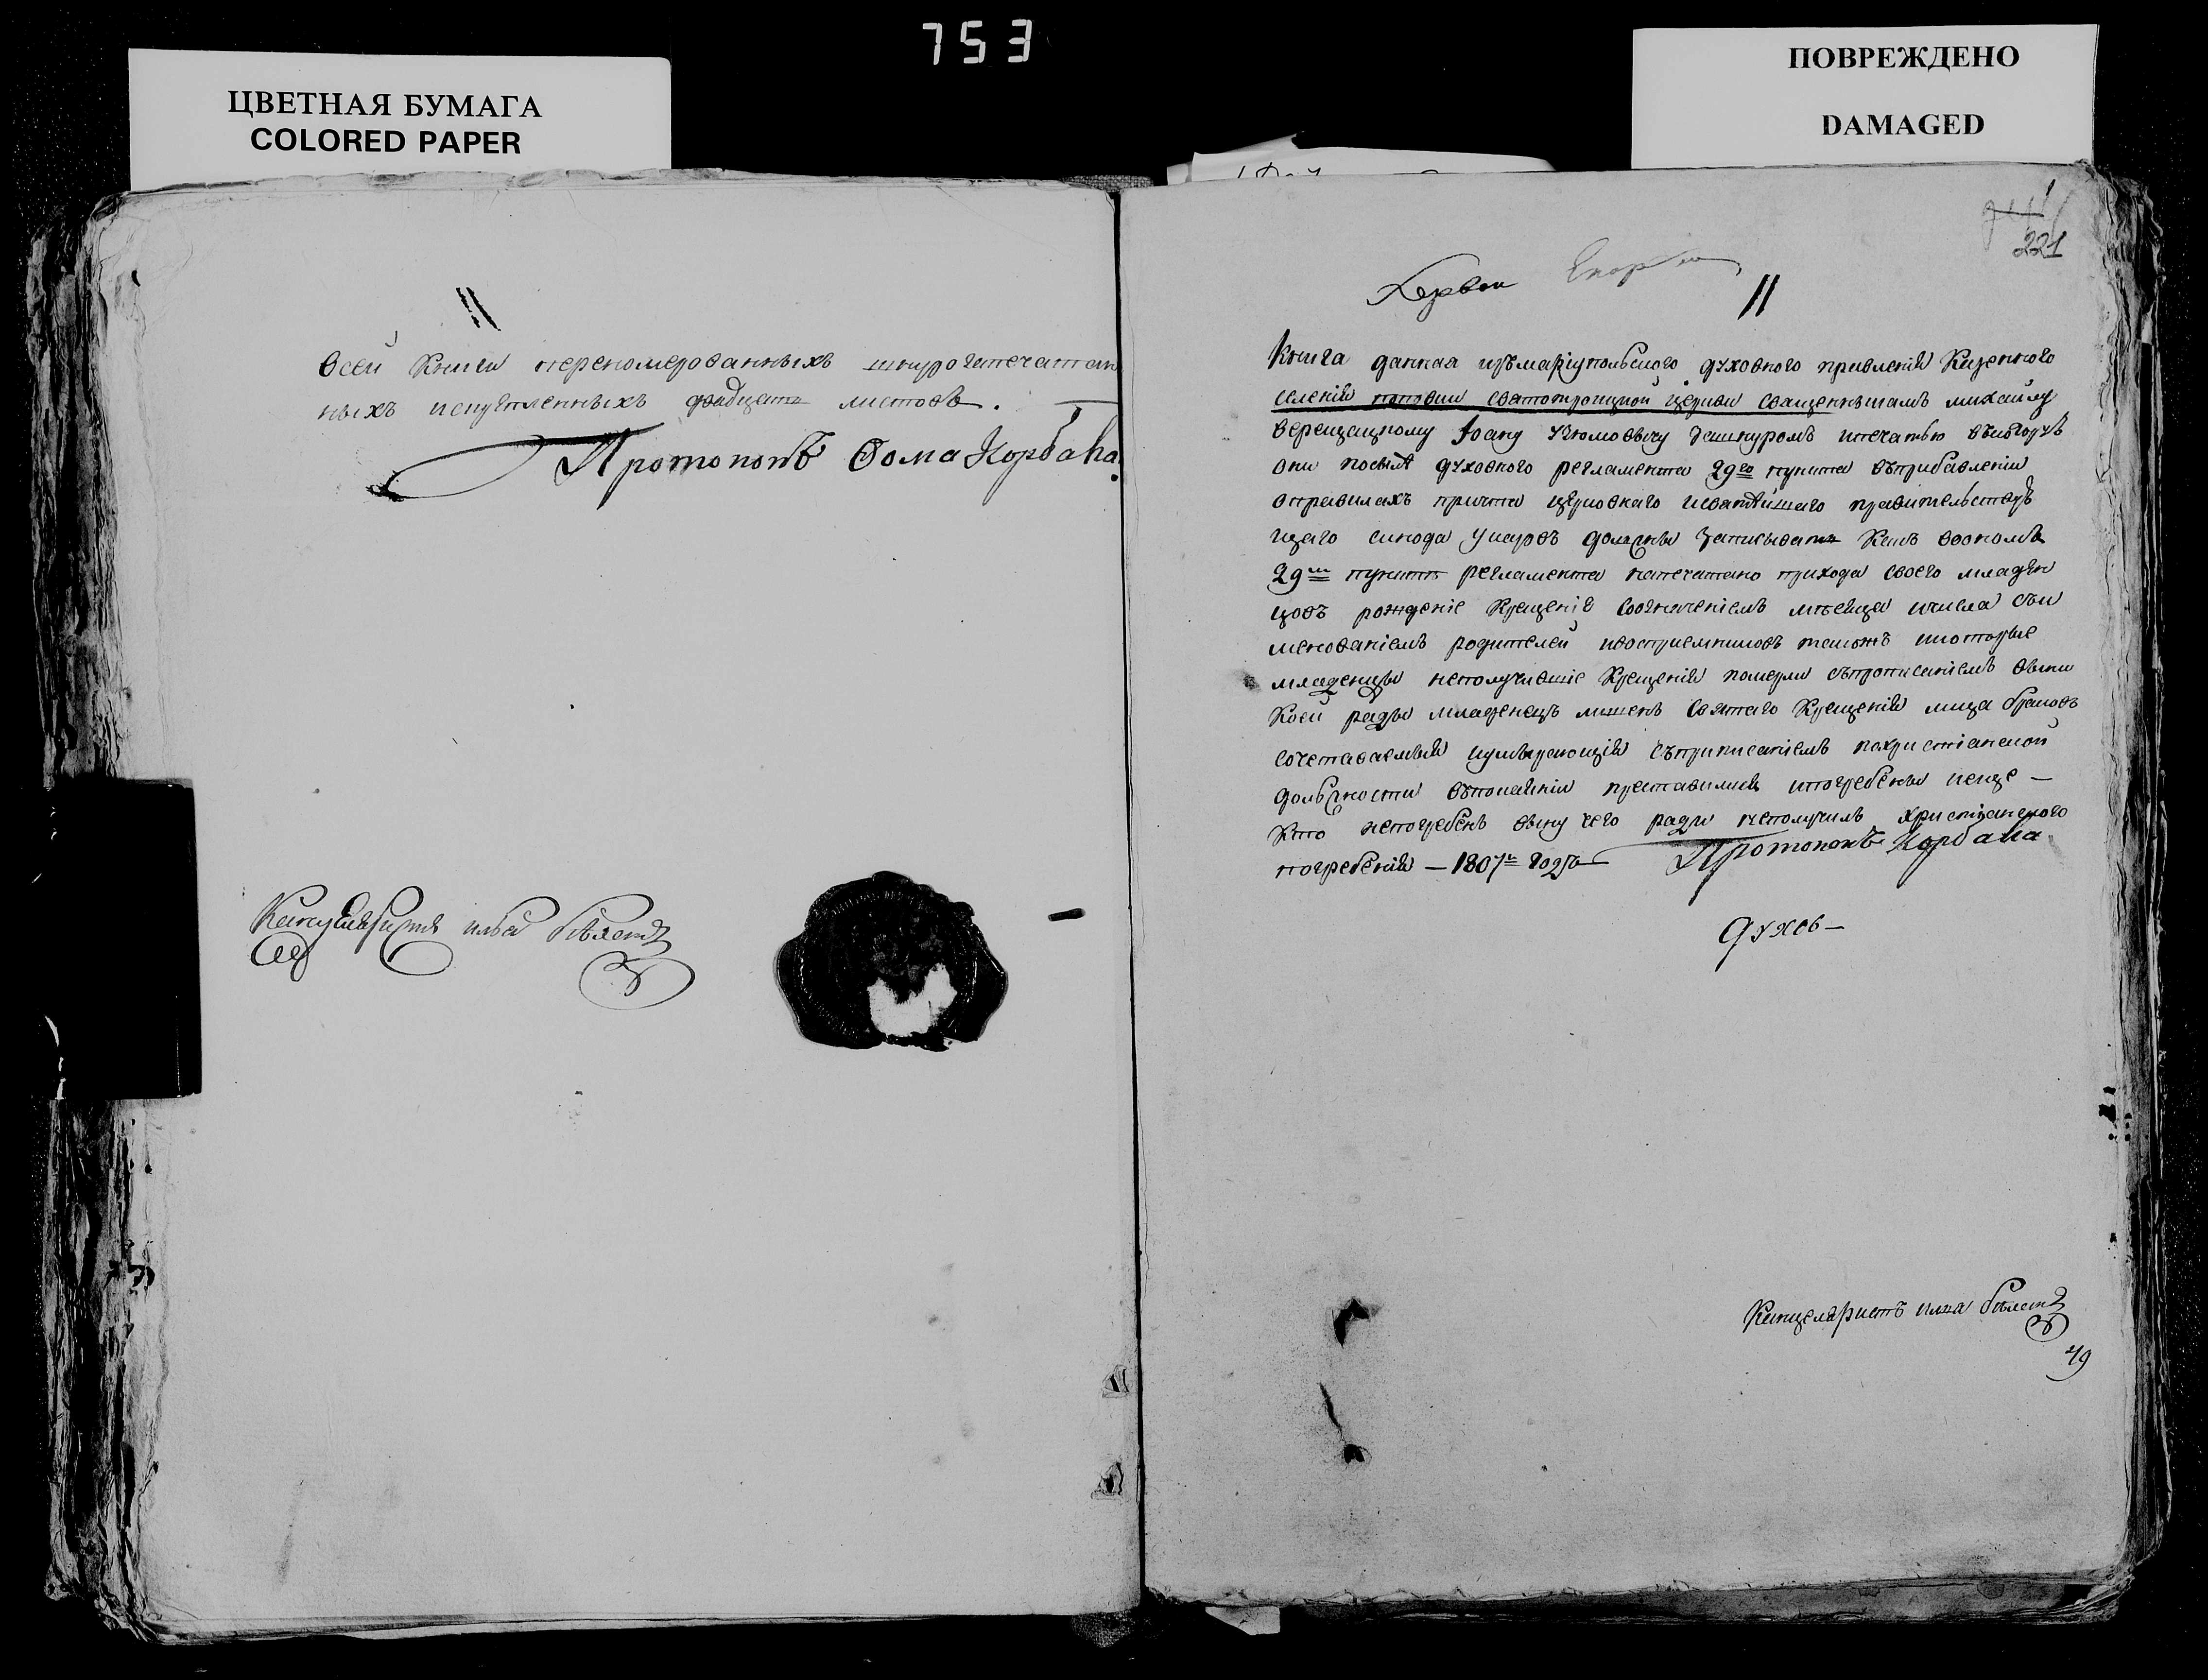 753
ЦВЕТНАЯ БУМАГА
COLORED PAPER
ПОВРЕЖДЕНО
DAMAGED
всей Книги переномерованныхъ шнурозапечатан
ныхъ искрепленныхъ листовъ.
Протопопъ Ѳома Корбана
Канцеляристъ илья
221
11
Книга данная изъ мариупольского духовного правления Казенного
селения поповки святотроицкой церкви священникамъ михаилу
верещацкому Іоану зашнуромъ ипечатью
они посилѣ духовного регламента 29го пункта въприбавлении
оправилахъ причта церковнаго исвятѣйшаго правительствую
щаго синода указовъ должны записывать Какъ воономъ
29мъ пункте регламента напечатано прихода своего младен
цовъ рождение Крещение созначениемъ месяца ичисла съи
менованиемъ родителей ивосприемниковъ такожъ икоторые
младенцы неполучившие Крещения померли съприписаниемъ вины
Коей ради младенецъ лишенъ Святаго Крещения лица бракомъ
сочетаваемыя иумирающия съприписаниемъ похристианской
должности въпокаянии преставились ипогребены иеще —
Кто непогребенъ вину чего ради неполучилъ христианского
погребения — 1807го года
Протопопъ Корбана
духов—
Канцеляристъ илья
49